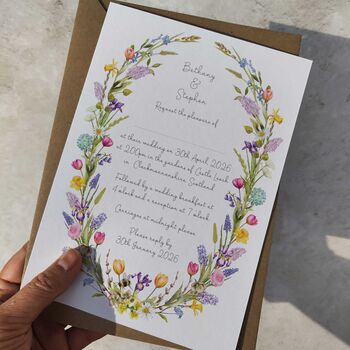 Bethany
&
Stephen
Request the pleasure of
at their wedding on 30th April 2026
at 2:00pm in the gardens of Castle
in Clackmannanshire, Scotland
Followed by a wedding breakfast at
4 o'clock and a reception at 7 o'clock
Carriages at midnight please
Please reply by
30th January 2026